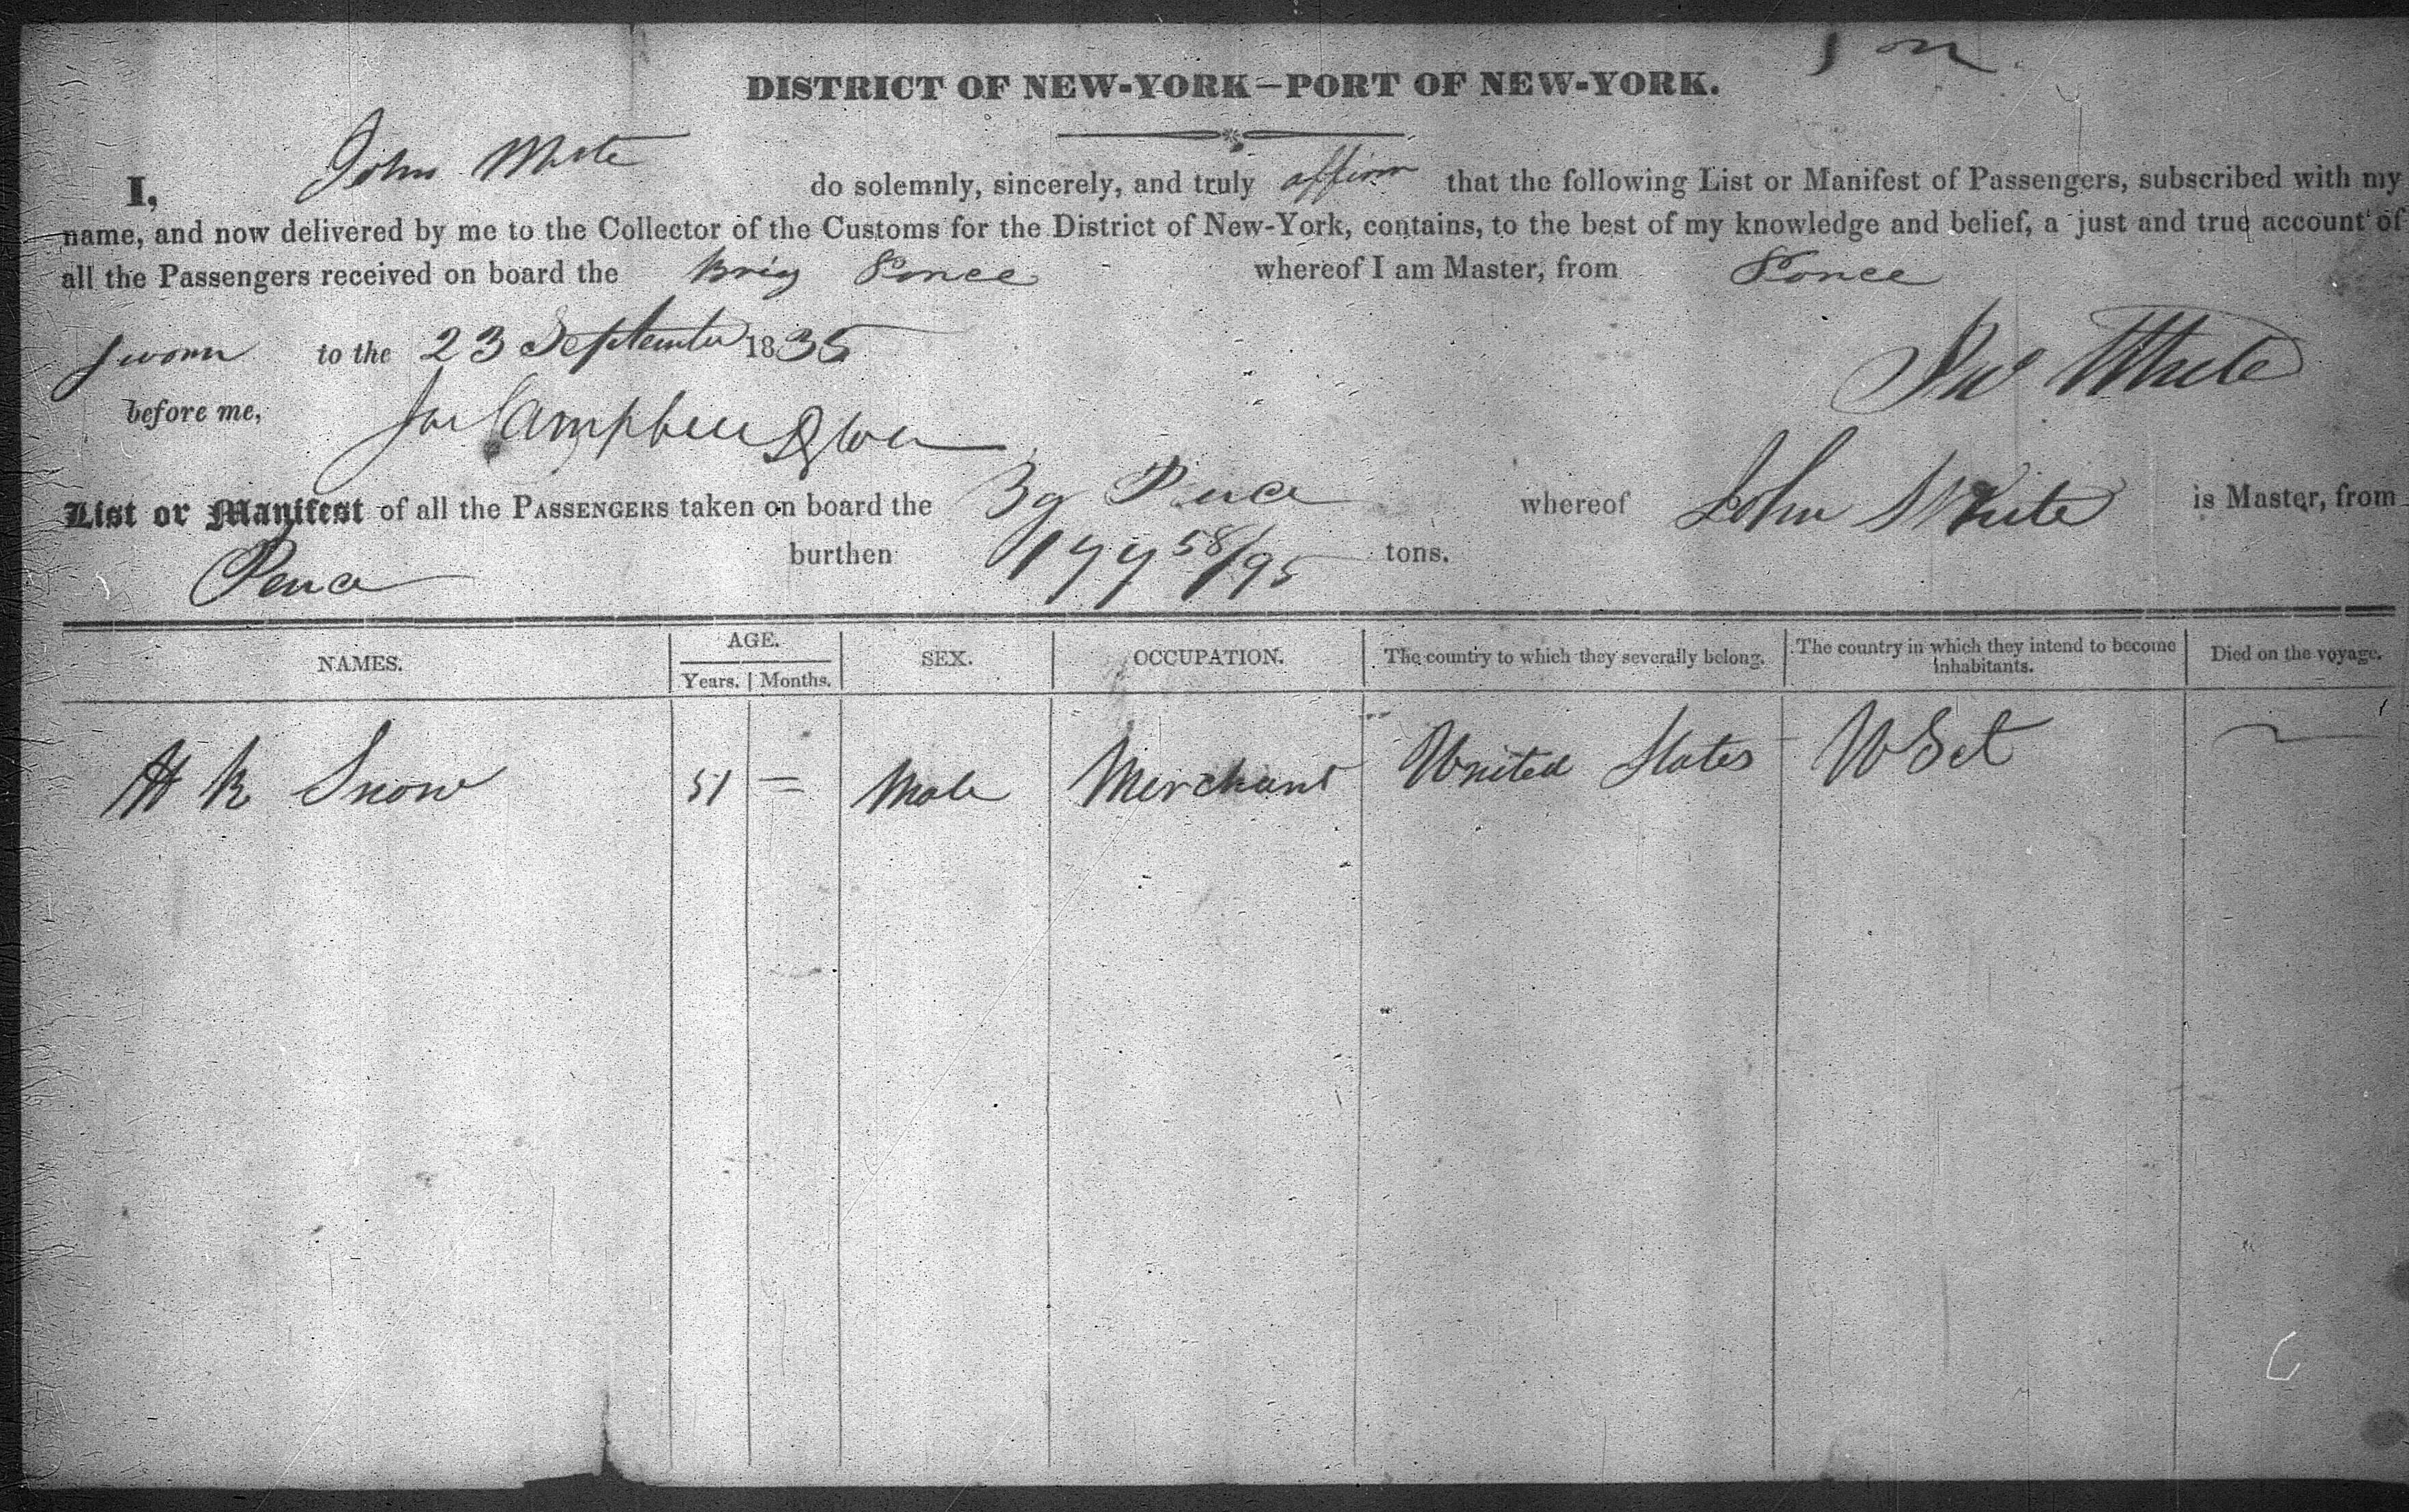 DISTRICT OF NEW-YORK—PORT OF NEW-YORK.
I, John White do solemnly, sincerely, and truly affirm that the following List or Manifest of Passengers, subscribed with my
name, and now delivered by me to the Collector of the Customs for the District of New-York, contains, to the best of my knowledge and belief, a just and true account of
all the Passengers received on board the Brig Ponce whereof I am Master, from Ponce
Sworn to the 23 September 1835
Jno White
before me, Campbell
List or Manifest of all the PASSENGERS taken on board the Bg Ponce whereof John White is Master, from
Ponce burthen 177 58/95 tons.
NAMES. AGE. Years. Months. SEX. OCCUPATION. The country to which they severally belong. The country in which they intend to become inhabitants. Died on the voyage.
H K Snow 51 — Male Merchant United States